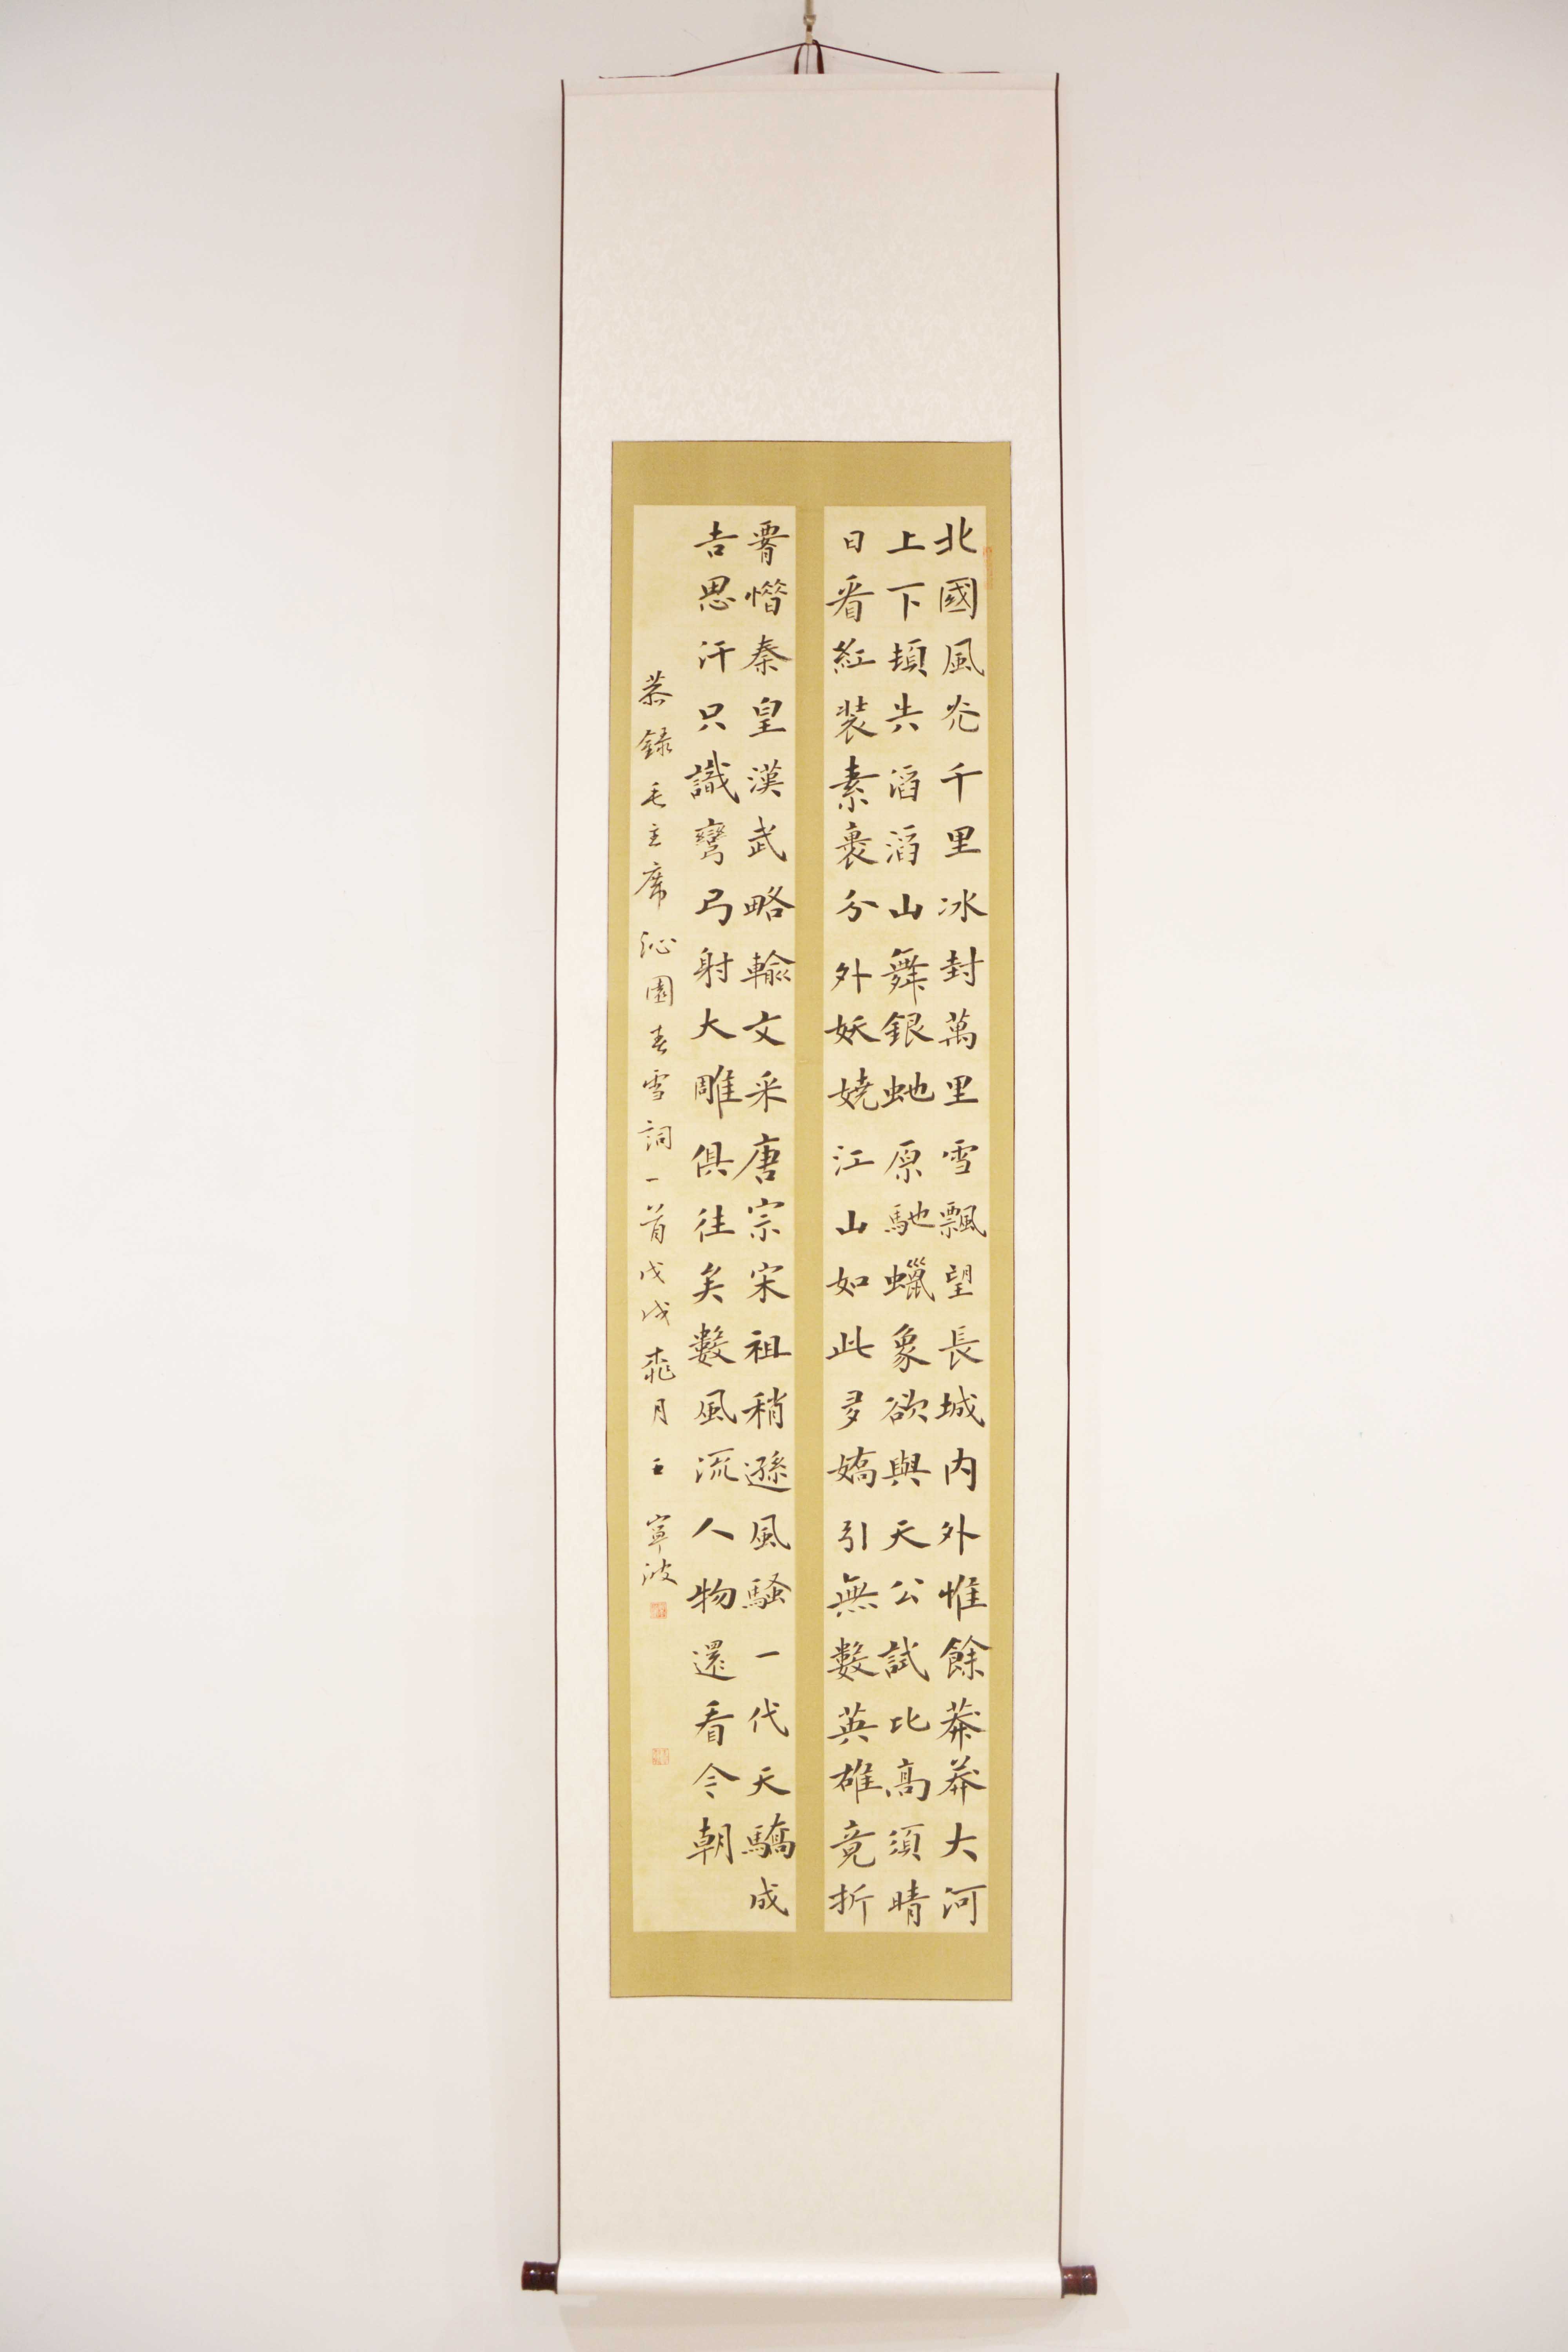 北國風光千里冰封萬里雪飄望長城内外惟餘莽莽大河
上下頓失滔滔山舞銀虵原馳蠟象欲與天公試比高須晴
日看紅裝素裹分外妖嬈江山如此多嬌引無數英雄竟折
腰惜秦皇漢武略輸文采唐宗宋祖稍遜風騷一代天驕成
吉思汗只識彎弓射大雕俱往矣數風流人物還看今朝
恭錄毛主席沁園春雪詞一首戊戌桃月王寧波